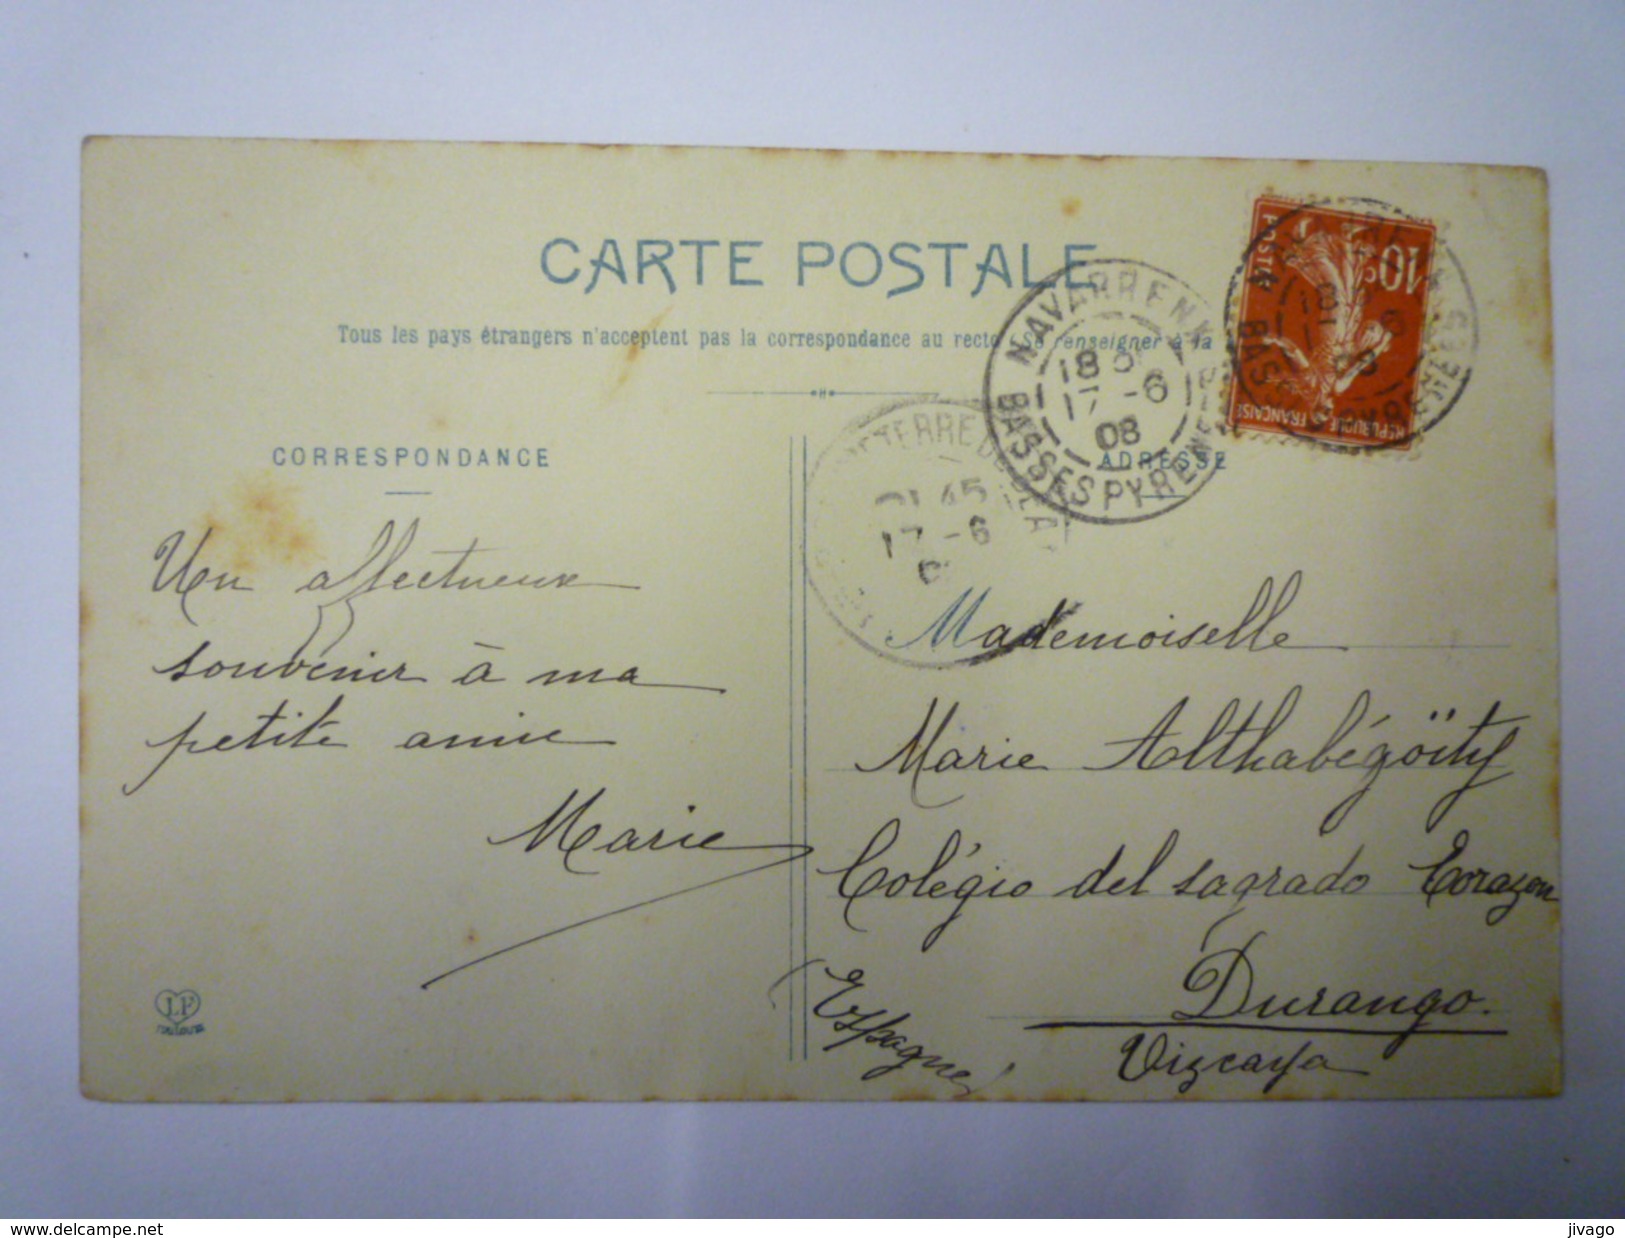 CARTE POSTALE
Tous les pays étrangers n'acceptent pas la correspondance au recto (Se renseigner à la
CORRESPONDANCE
ADRESSE
NAVARRENX
BASSES PYRENEES
18
17 -6
08
45
17 -6
10c
POSTES
REPUBLIQUE FRANÇAISE
Un affectueux
souvenir à ma
petite amie
Marie
Mademoiselle
Marie Althabégoïty
Colégio del sagrado Corazon
Durango.
Vizcaya
(Espagne)
LF
TOULOUSE
www.delcampe.net
jivago